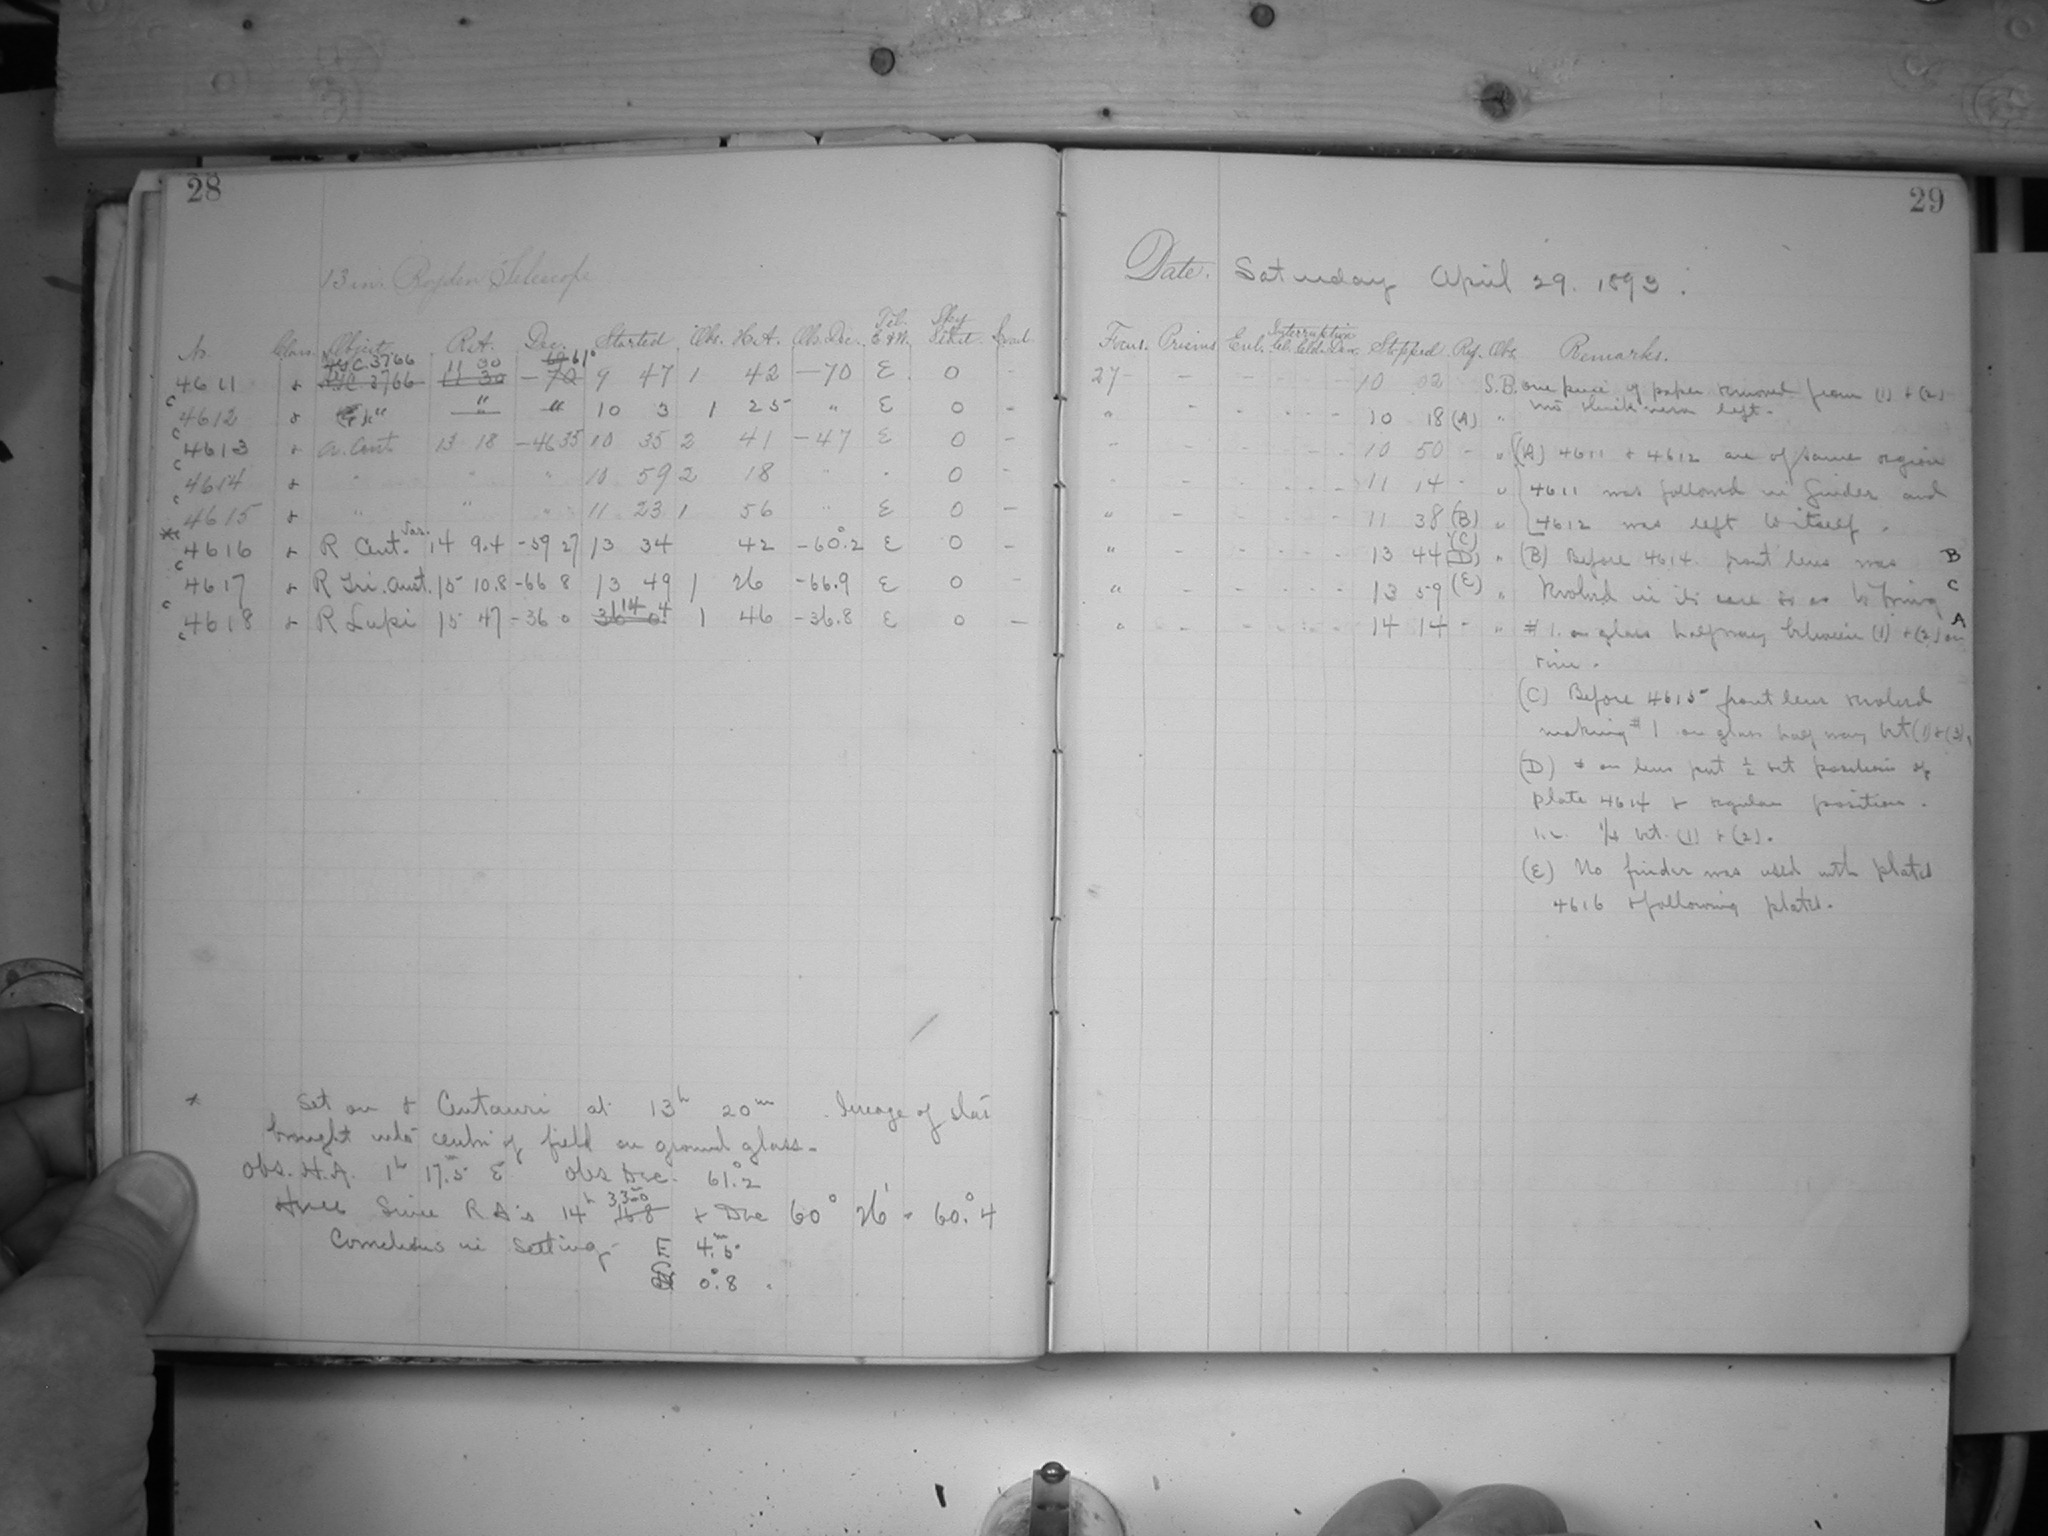 28
13 in. Boyden Telescope
No. Class. Object. R.A. Dec. Started Obs. H.A. Obs. Dec. Tel. E or W. Sky Setut
NGC 3766 11 30 61°
4611 NGC 3766 11 30 -70 9 47 1 42 -70 E 0
4612 " " " 10 3 1 25 " E 0 -
4613 ω. Cent. 13 18 -46 35 10 35 2 41 -47 E 0 -
4614 " " " 10 59 2 18 " " 0 -
4615 " " " 11 23 1 56 " E 0 -
* 4616 R Cent. Var. 14 9.4 -59 27 13 34 42 -60°.2 E 0 -
4617 R Tri. Aust. 15 10.8 -66 8 13 49 1 26 -66.9 E 0 -
4618 R Lupi 15 47 -36 0 14 4 1 46 -36.8 E 0 -
* Set on α Centauri at 13h 20m. Image of star
brought into centre of field on ground glass.
Obs. H.A. 1h 17m.5 E Obs Dec. 61°.2
Since R.A. is 14h & Dec 60° 26' = 60°.4
Corrections in setting E 4m.5
S 0°.8.
29
Date. Saturday April 29. 1893.
Focus. Prisms Exl. Interruption Stopped Rej. Obs. Remarks.
27 - - 10 02 S.B. one piece of paper removed from (1) & (2)
" - - 10 18 (A) " left.
" - - 10 50 - " (A) 4611 & 4612 are of same region
" - - 11 14 - " 4611 was followed in finder and
" - - 11 38 (B) " 4612 was left to itself.
" - - 13 44 (C) (D) " (B) Before 4614 front lens was B
" - - 13 59 (E) " Revolved in its case so as to bring C
" - - 14 14 - " # 1. on glass halfway between (1) & (2) on A
rim.
(C) Before 4615 front lens revolved
making # 1 on glass half way bet (1) & (3).
(D) # on lens put ½ bet position of
plate 4614 & regular position.
i.e. ¼ bet. (1) & (2).
(E) No finder was used with plates
4616 & following plates.